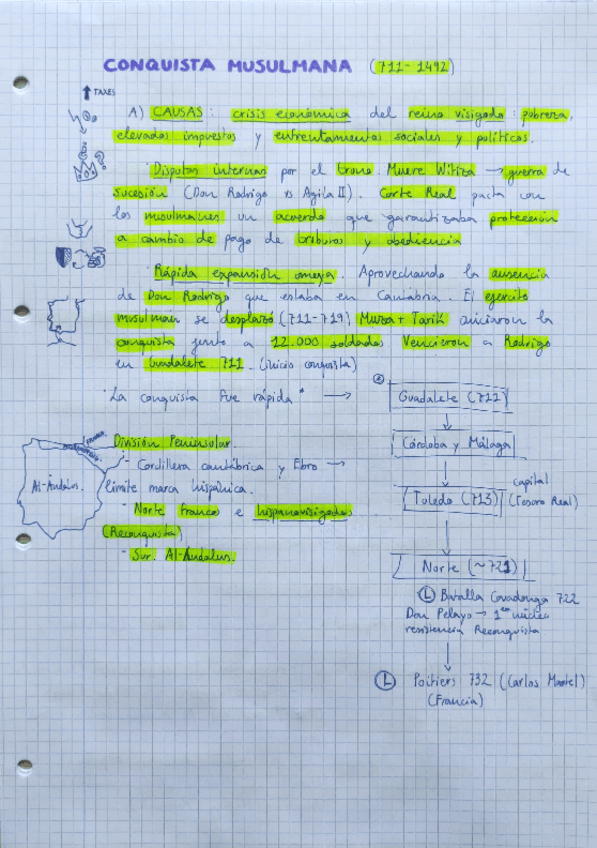 CONQUISTA MUSULMANA (711-1492)
↑ TAXES
A) CAUSAS: crisis económica del reino visigodo: pobreza,
elevados impuestos y enfrentamientos sociales y políticos.
· Disputas internas por el trono. Muere Witiza → guerra de
sucesión (Don Rodrigo vs Agila II). Corte Real pacta con
los musulmanes un acuerdo que garantizaba protección
a cambio de pago de tributos y obediencia
· Rápida expansión omeya. Aprovechando la ausencia
de Don Rodrigo que estaba en Cantabria. El ejército
musulmán se desplazó (711-719) Muza + Tarik iniciaron la
conquista junto a 12.000 soldados Vencieron a Rodrigo
en Guadalete 711. (inicio conquista)
· La conquista fue rápida * →
Guadalete (711)
Córdoba y Málaga
Toledo (713) capital (Tesoro Real)
Norte (~721)
Ⓛ Batalla Covadonga 722
Don Pelayo → 1er núcleo
resistencia Reconquista
Ⓛ Poitiers 732 (Carlos Martel)
(Francia)
División Peninsular
- Cordillera cantábrica y Ebro →
límite marca hispánica.
· Norte franco e hispanovisigodos
(Reconquista)
· Sur. Al-Ándalus.
Al-Ándalus.